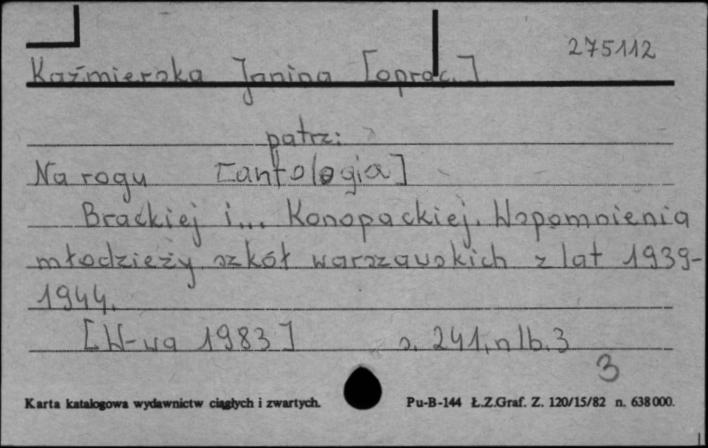 275112
Kaźmierska Janina [oprac.]
patrz:
Na rogu [antologia]
Brackiej i... Konopackiej. Wspomnienia
młodzieży szkół warszawskich z lat 1939-
1944.
[W-wa 1983] s. 241, nlb. 3
3
Karta katalogowa wydawnictw ciągłych i zwartych. Pu-B-144 Ł.Z.Graf. Z. 120/15/82 n. 638 000.